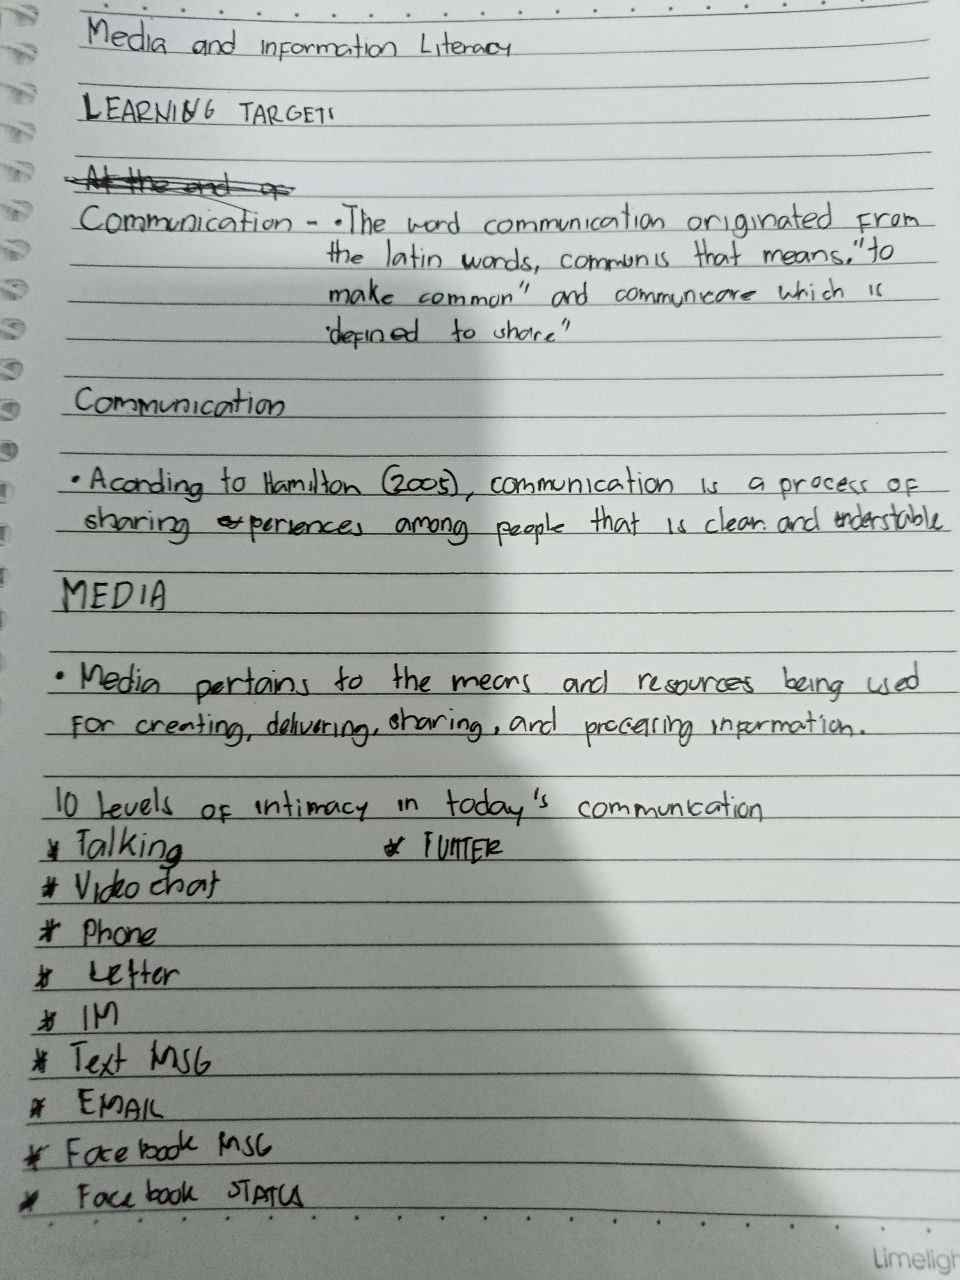 Media and information Literacy
LEARNING TARGETS
At the end of
Communication - • The word communication originated from
the latin words, communis that means, "to
make common" and communicare which is
"defined to share"
Communication
• Acording to Hamilton (2005), communication is a process of
sharing experiences among people that is clear and understable
MEDIA
• Media pertains to the means and resources being used
for creating, delivering, sharing, and processing information.
10 levels of intimacy in today's communication
* Talking * TWITTER
* Video chat
* Phone
* Letter
* IM
* Text MSG
* EMAIL
* Facebook MSG
* Facebook STATUS
Limeligh